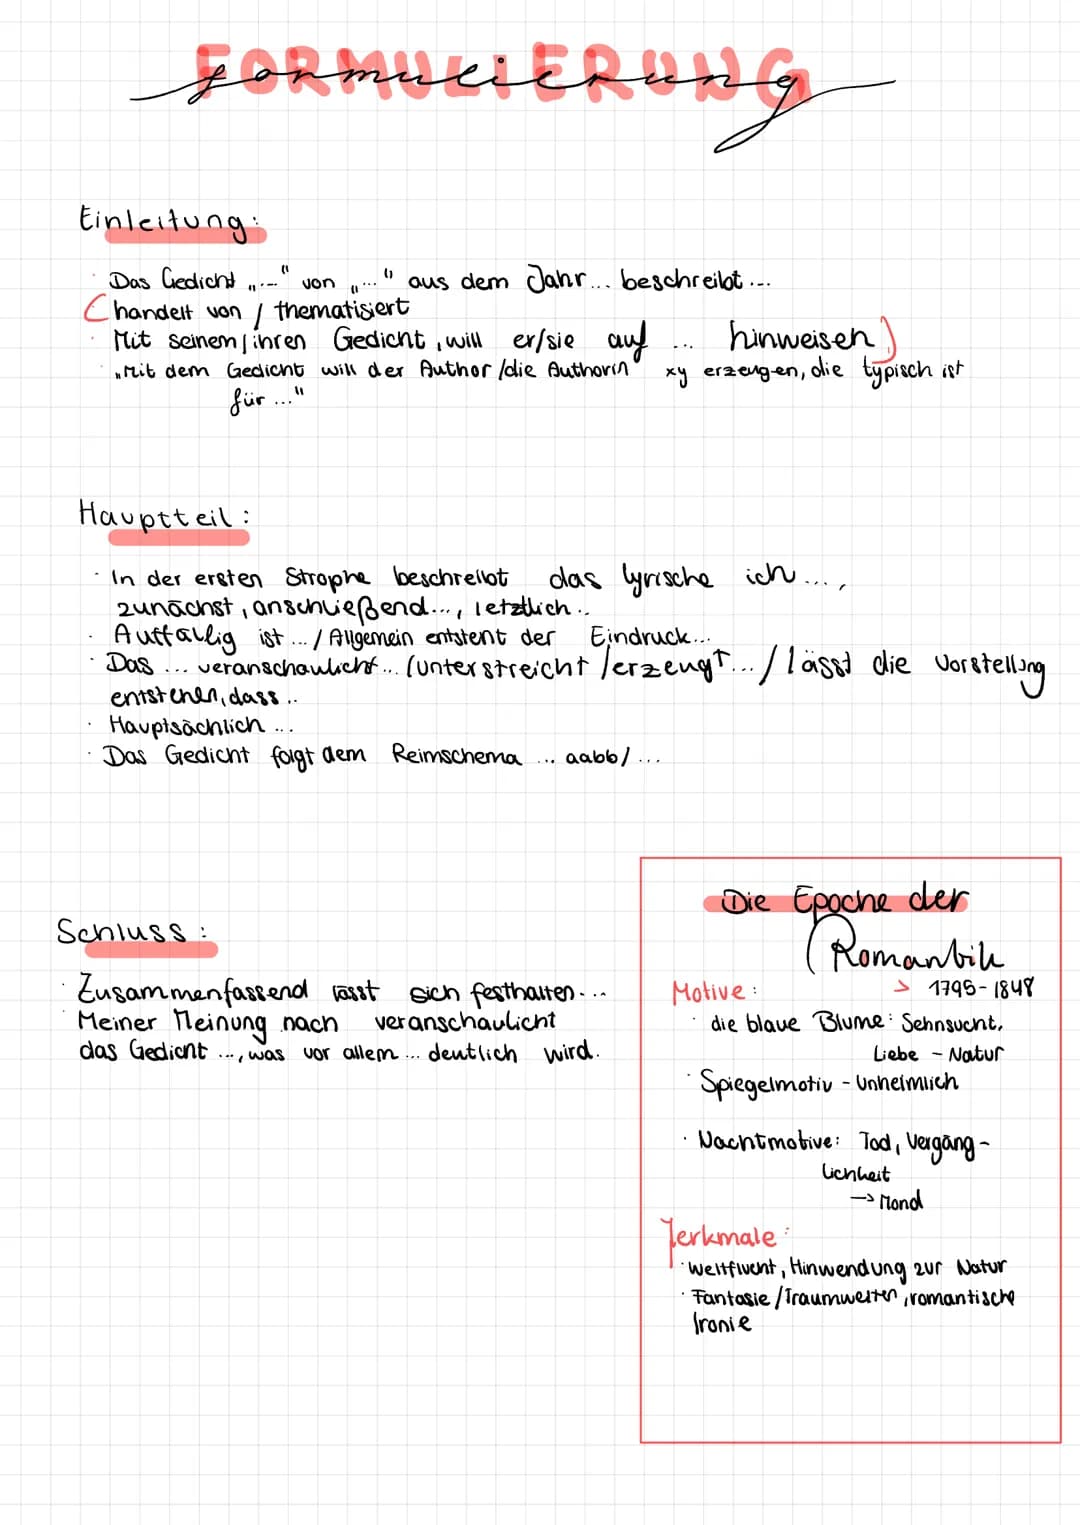 FORMULIERUNG
formulierung
Einleitung:
· Das Gedicht „..." von „..." aus dem Jahr... beschreibt ...
(handelt von / thematisiert
· Mit seinem/ihren Gedicht, will er/sie auf ... hinweisen)
· „Mit dem Gedicht will der Author/die Authorin xy erzeugen, die typisch ist
für ..."
Hauptteil:
· In der ersten Strophe beschreibt das lyrische ich ...,
zunächst, anschließend..., letztlich..
· Auffällig ist ... / Allgemein entsteht der Eindruck...
· Das ... veranschaulicht... (unterstreicht /erzeugt... / lässt die Vorstellung
entstehen, dass ..
· Hauptsächlich ...
· Das Gedicht folgt dem Reimschema ... aabb/ ...
Schluss:
· Zusammenfassend lässt sich festhalten...
· Meiner Meinung nach veranschaulicht
das Gedicht ..., was vor allem ... deutlich wird.
Die Epoche der
Romantik
> 1795-1848
Motive:
· die blaue Blume: Sehnsucht,
Liebe - Natur
· Spiegelmotiv - Unheimlich
· Nachtmotive: Tod, Vergäng-
lichkeit
→ Mond
Merkmale:
· Weltflucht, Hinwendung zur Natur
· Fantasie/Traumwelten, romantische
Ironie